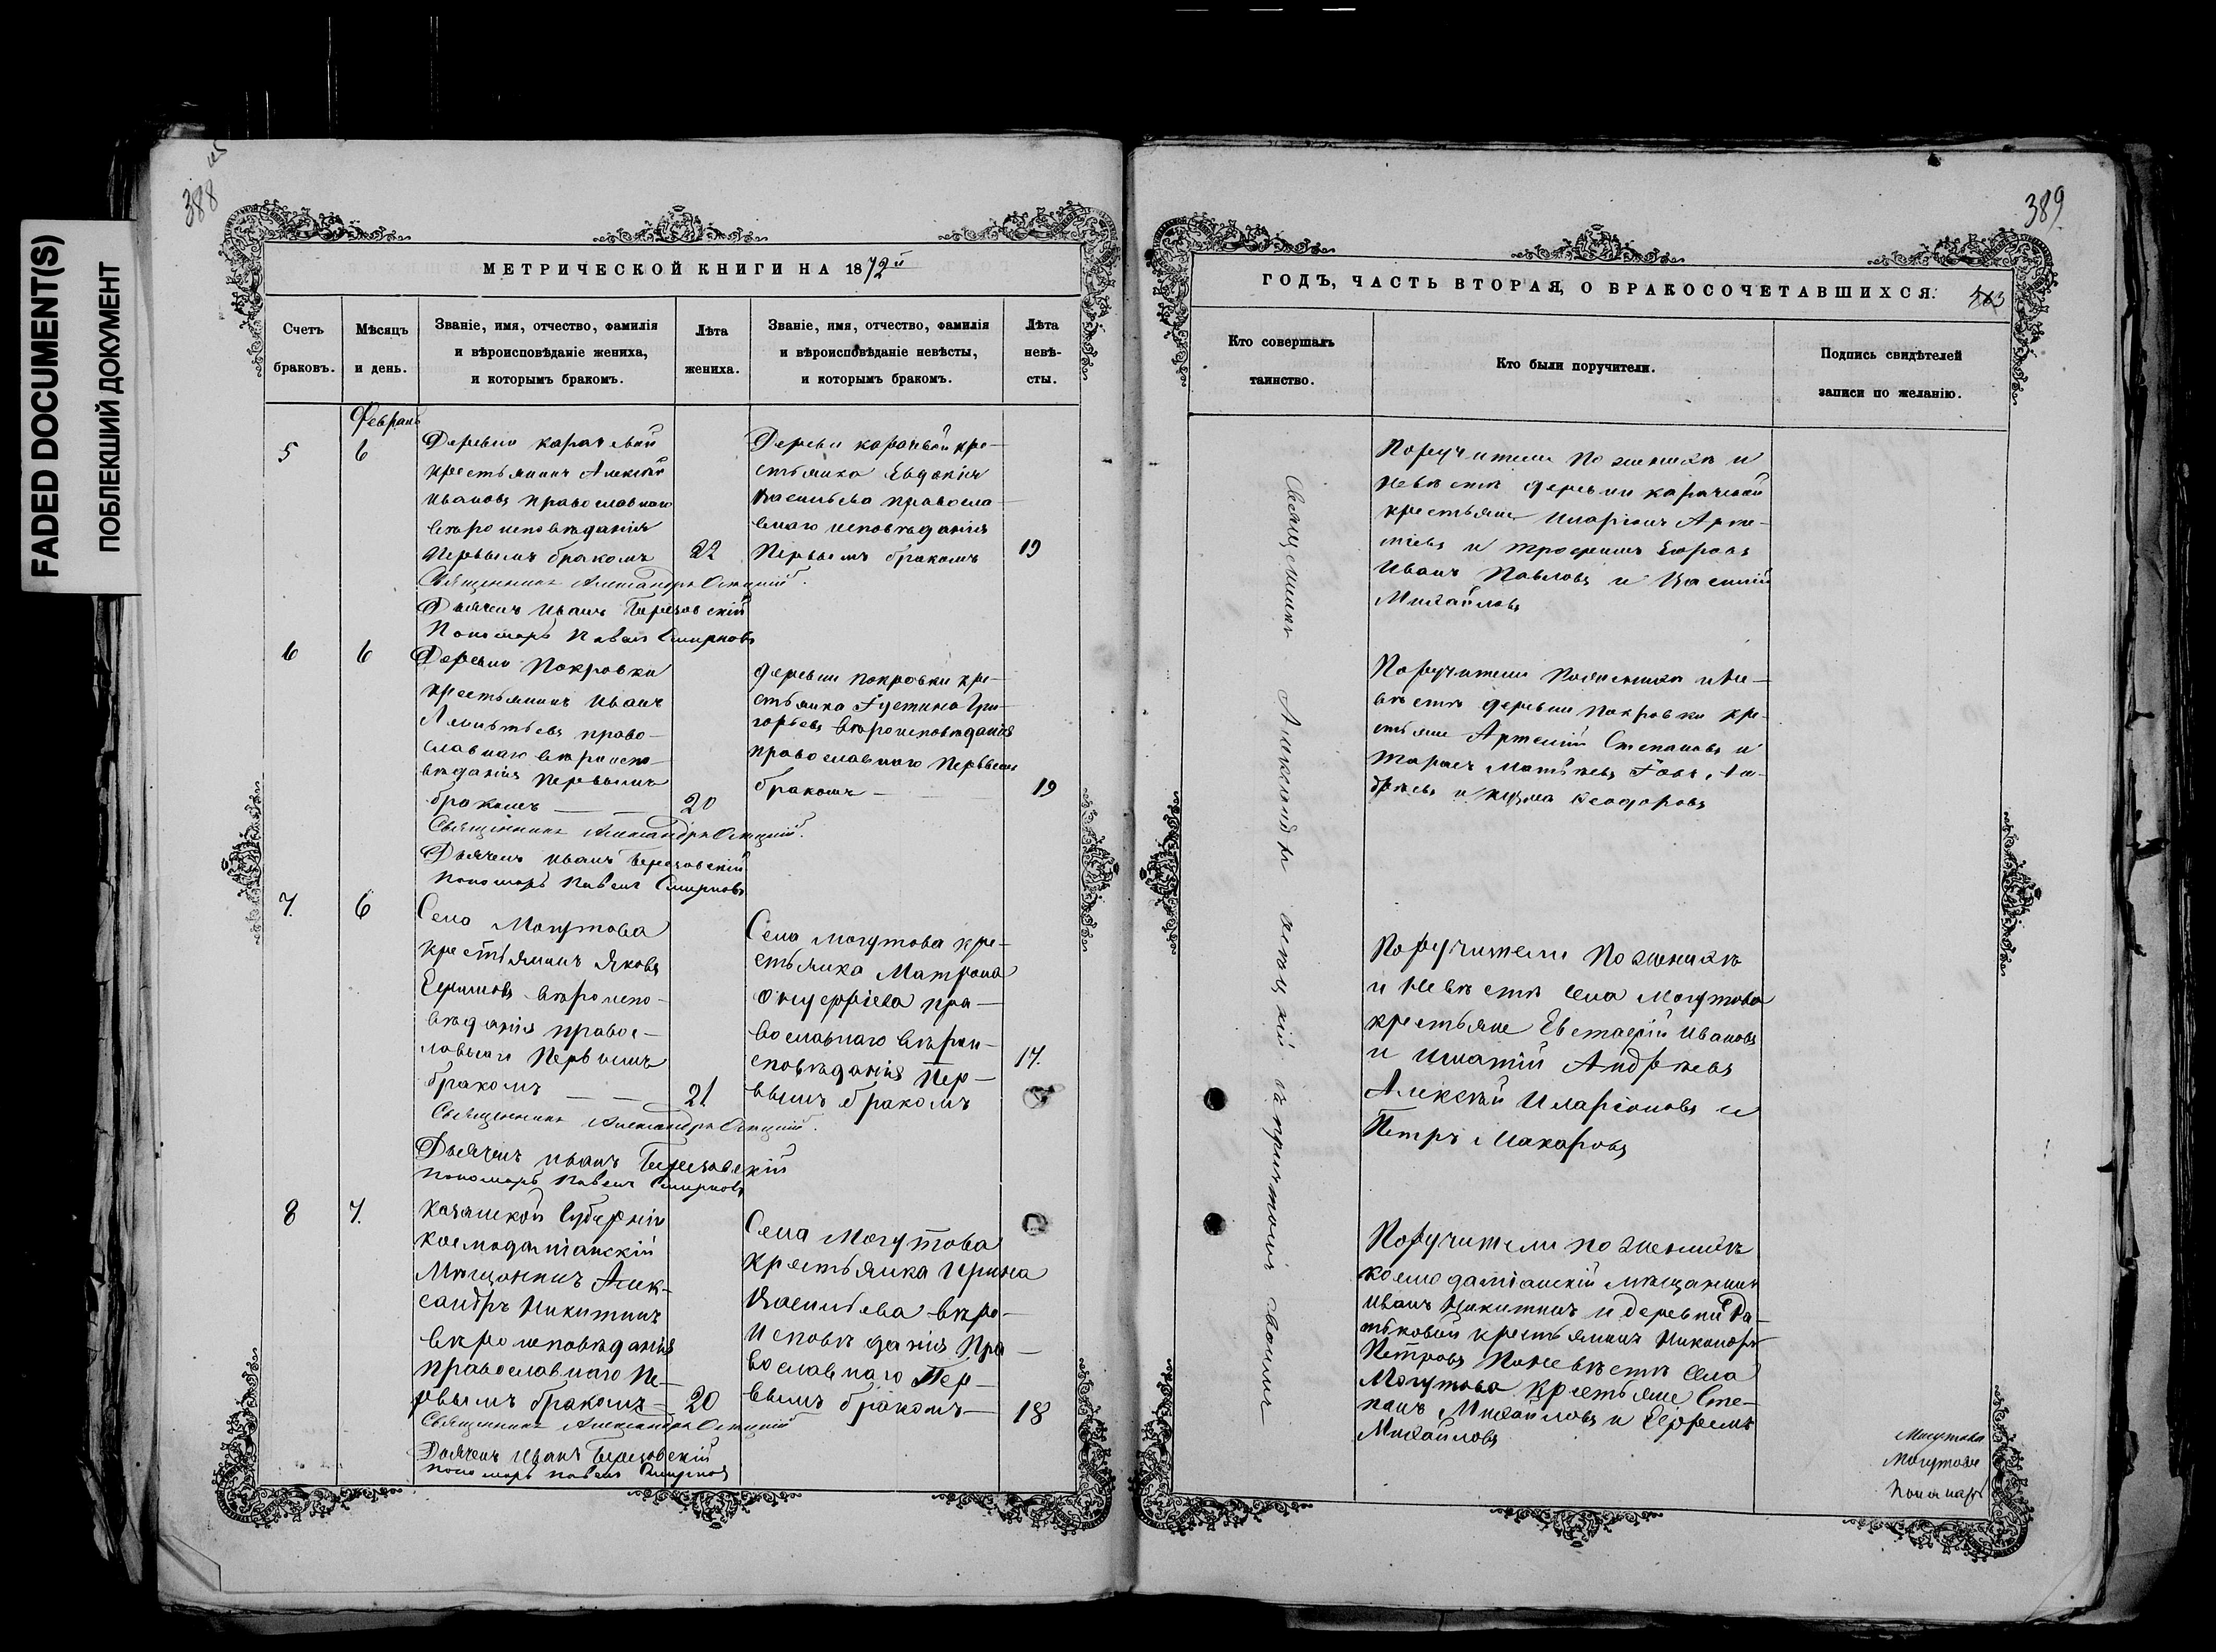 FADED DOCUMENT(S)
ПОБЛЕКШИЙ ДОКУМЕНТ
388
МЕТРИЧЕСКОЙ КНИГИ НА 1872й
Счетъ браковъ.
Мѣсяцъ и день.
Званіе, имя, отчество, фамилія и вѣроисповѣданіе жениха, и которымъ бракомъ.
Лѣта жениха.
Званіе, имя, отчество, фамилія и вѣроисповѣданіе невѣсты, и которымъ бракомъ.
Лѣта невѣ-
сты.
Февраль
5
6
Деревни Карачевой
крестьянинъ Алексѣй
Ивановъ православнаго
вѣроисповѣданія
первымъ бракомъ
22
Деревни Карачевой кре-
стьянка Евдокія
Васильева правосла-
внаго исповѣданія
первымъ бракомъ
19
Священникъ Александръ
Дьячекъ Иванъ Березовскій
Пономарь Павелъ Смирновъ
6
6
Деревни Покровки
крестьянинъ Иванъ
право-
славнаго вѣроиспо-
вѣданія первымъ
бракомъ
20
деревни Покровки кре-
стьянка Іустина Гри-
горьева вѣроисповѣданія
православнаго первымъ
бракомъ
19
Священникъ Александръ
Дьячекъ Иванъ Березовскій
Пономарь Павелъ Смирновъ
7.
6
Села Могутова
крестьянинъ Яковъ
Ефимовъ вѣроиспо-
вѣданія правос-
лавнаго первымъ
бракомъ
21
Села Могутова кре-
стьянка Матрона
Онуфріева пра-
вославнаго вѣрои-
сповѣданія пер-
вымъ бракомъ
17.
Священникъ Александръ
Дьячекъ Иванъ Березовскій
Пономарь Павелъ Смирновъ
8
7.
Казанской Губерніи
Космодаміанскій
Мѣщанинъ Алек-
сандръ Никитинъ
вѣроисповѣданія
православнаго пе-
рвымъ бракомъ
20
Села Могутова
крестьянка Ирина
Васильева вѣро-
исповѣданія пра-
вославнаго пер-
вымъ бракомъ
18
Священникъ Александръ
Дьячекъ Иванъ Березовскій
Пономарь Павелъ Смирновъ
389.
ГОДЪ, ЧАСТЬ ВТОРАЯ, О БРАКОСОЧЕТАВШИХСЯ.
Кто совершалъ таинство.
Кто были поручители.
Подпись свидѣтелей записи по желанію.
Священникъ Александръ съ причтомъ своимъ
Поручители по женихѣ и
невѣстѣ деревни Карачевой
крестьяне Иларіонъ Арте-
мьевъ и Трофимъ Егоровъ
Иванъ Павловъ и Василій
Михайловъ
Поручители по женихѣ и не-
вѣстѣ деревни Покровки кре-
стьяне Артемій Степановъ и
Тарасъ Матвѣевъ Іовъ Ан-
дрѣевъ и Кузма Феодоровъ
Поручители по женихѣ
и невѣстѣ села Могутова
крестьяне Евстафій Ивановъ
и Игнатій Андрѣевъ
Алексѣй Иларіоновъ и
Петръ Макаровъ
Поручители по женихѣ
Космодаміанскій мѣщанинъ
Иванъ Никитинъ и деревни
крестьянинъ Никаноръ
Петровъ по невѣстѣ села
Могутова крестьяне Сте-
панъ Михайловъ и Ефремъ
Михайловъ
Могутова
Пономарь